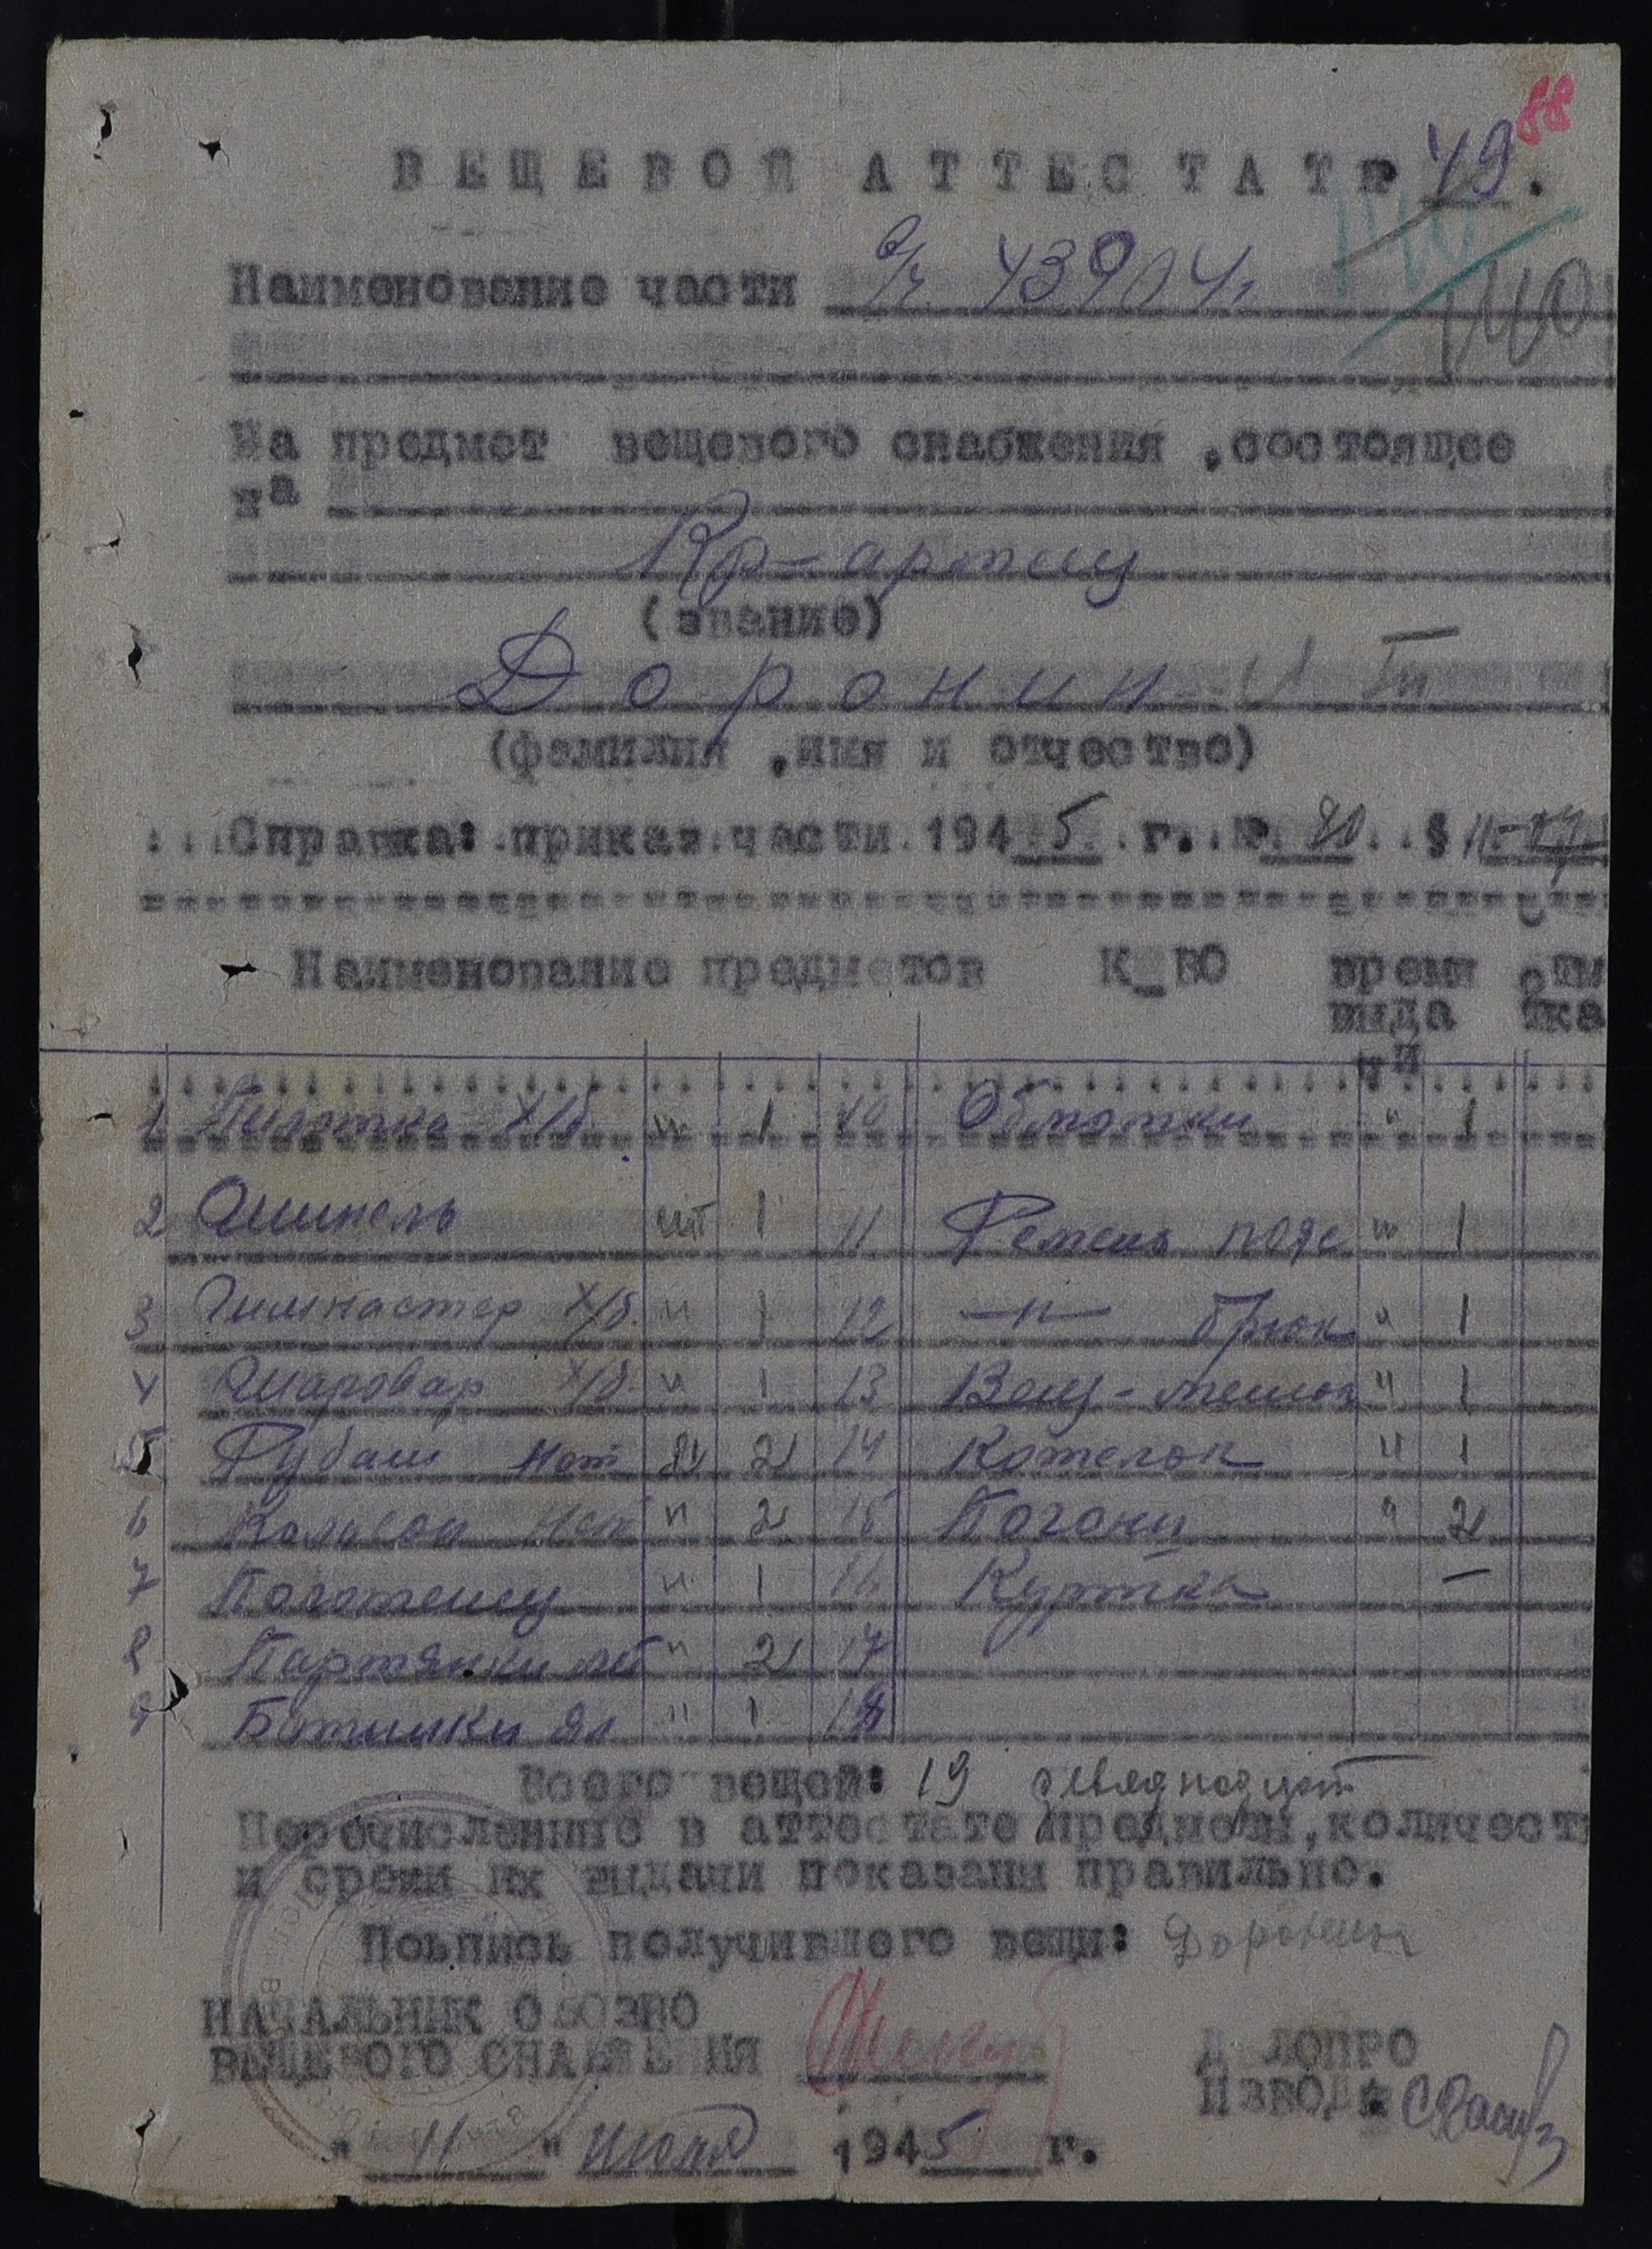 88
ВЕЩЕВОЙ АТТЕСТАТ № 49.
Наименование части в/ч 43904
140
На предмет вещевого снабжения ,состоящее
на
Кр-армеец
(звание)
Доронин
(фамилия ,имя и отчество)
Справка: приказ части 1945 г. № 80 §
Наименование предметов К_ВО время выдачи
1 Пилотка х/б. ш 1 10 Обмотки " 1
2 Шинель шт 1 11 Ремень пояс ш 1
3 Гимнастер х/б. " 1 12 —"— брюк " 1
4 Шаровар х/б. " 1 13 Вещ-мешок " 1
5 Рубаш нат 2 14 Котелок " 1
6 Кальсон нат " 2 15 Погони " 2
7 Полотенц " 1 16 Куртка —
8 Партянки " 2 17
9 Ботинки " 1 18
Всего вещей: 19
Перечисленные в аттестате предметы,количест
и сроки их выдачи показаны правильно.
Подпись получившего вещи: Доронин
НАЧАЛЬНИК ОБОЗНО
ВЕЩЕВОГО СНАБЖЕНИЯ
ДЕЛОПРО
ИЗВОД:
" 11 " июля 1945 г.